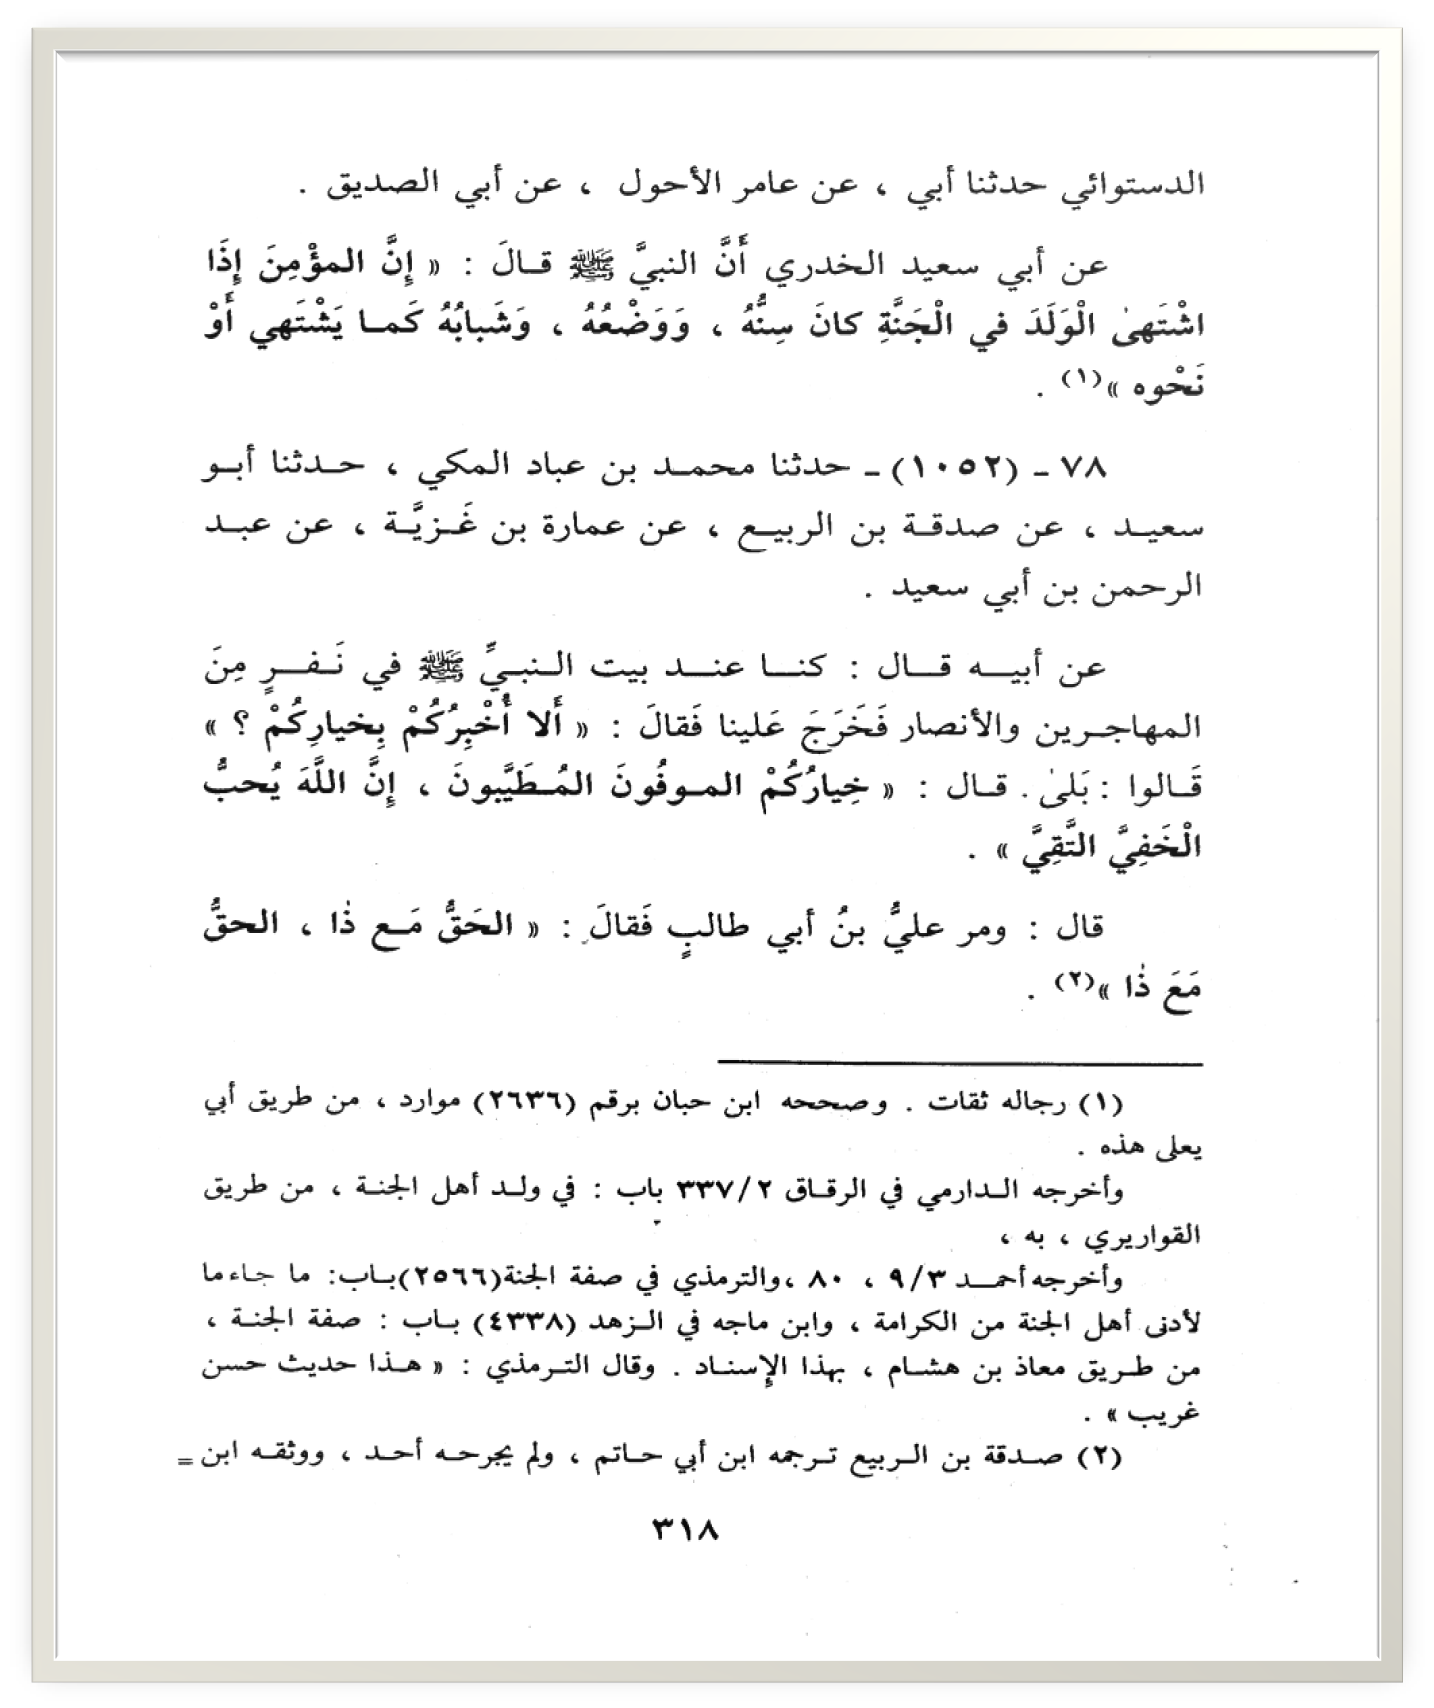 الدستوائي حدثنا أبي ، عن عامر الأحول ، عن أبي الصديق .
عن أبي سعيد الخدري أَنَّ النبيَّ ﷺ قـالَ : « إِنَّ المؤْمِنَ إِذَا
اشْتَهىٰ الْوَلَدَ في الْجَنَّةِ كانَ سِنُّهُ ، وَوَضْعُهُ ، وَشَبابُهُ كَمـا يَشْتَهي أَوْ
نَحْوه »(١) .
٧٨ ـ (١٠٥٢) ـ حدثنا محمـد بن عباد المكي ، حـدثنا أبـو
سعيـد ، عن صدقـة بن الربيـع ، عن عمارة بن غَـزيَّـة ، عن عبـد
الرحمن بن أبي سعيد .
عن أبيـه قـال : كنـا عنـد بيت الـنبـيِّ ﷺ في نَـفـرٍ مِنَ
المهاجـرين والأنصار فَخَرَجَ عَلينا فَقالَ : « أَلا أُخْبِرُكُمْ بِخيارِكُمْ ؟ »
قَـالوا : بَلىٰ . قـال : « خِيارُكُمْ المـوفُونَ المُـطَيَّبونَ ، إِنَّ اللَّهَ يُحبُّ
الْخَفِيَّ التَّقِيَّ » .
قال : ومر عليُّ بنُ أبي طالبٍ فَقالَ : « الحَقُّ مَـع ذٰا ، الحقُّ
مَعَ ذٰا »(٢) .
(١) رجاله ثقات . وصححه ابن حبان برقم (٢٦٣٦) موارد ، من طريق أبي
يعلى هذه .
وأخرجه الـدارمي في الرقـاق ٣٣٧/٢ باب : في ولـد أهل الجنـة ، من طريق
القواريري ، به ،
وأخرجه أحمـد ٩/٣ ، ٨٠ ،والترمذي في صفة الجنة(٢٥٦٦)بـاب: ما جـاء ما
لأدنى أهل الجنة من الكرامة ، وابن ماجه في الـزهد (٤٣٣٨) بـاب : صفة الجنـة ،
من طـريق معاذ بن هشـام ، بهذا الإسنـاد . وقال التـرمذي : « هـذا حديث حسن
غريب » .
(٢) صـدقة بن الـربيع تـرجمه ابن أبي حـاتم ، ولم يجرحـه أحـد ، ووثقـه ابن =
٣١٨